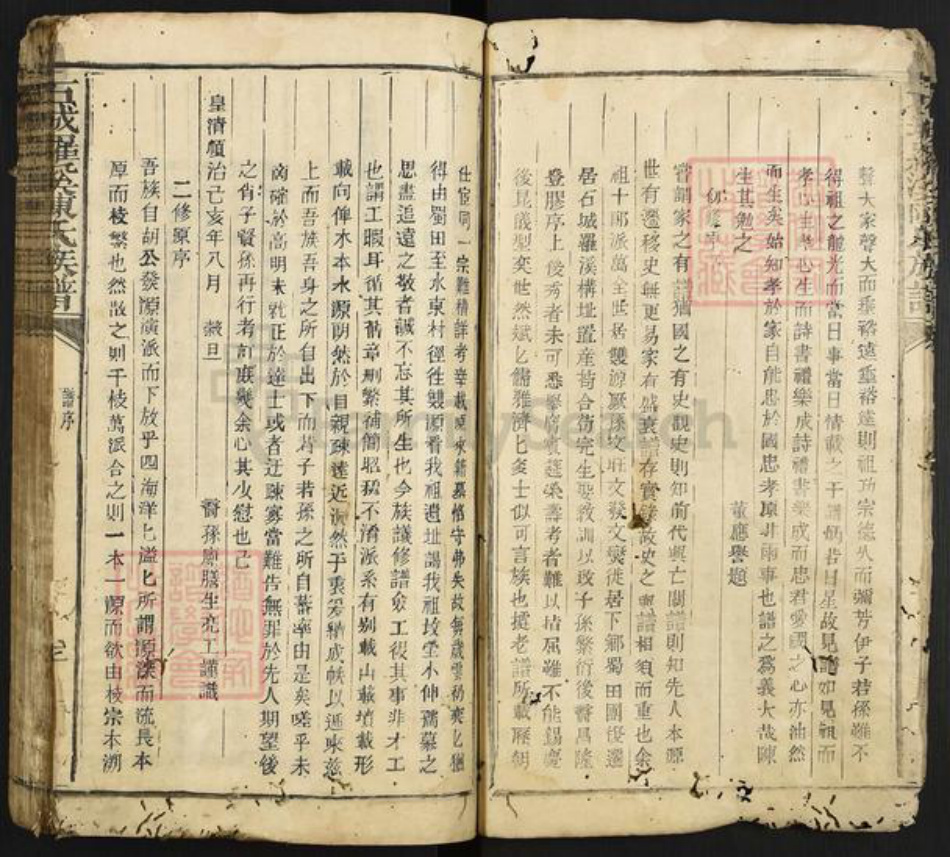 聲大家聲大而垂裕遠垂裕遠則祖功宗德久而彌芳伊子若孫雖不
得祖之龍光而當日事當日情載之于譜炳若日星故見譜如見祖而
孝心生孝心生而詩書禮樂成詩禮書樂成而忠君愛國之心亦油然
而生矣始知孝於家自能忠於國忠孝原非兩事也譜之為義大哉陳
生其勉之
董應譽題
嘗謂家之有譜猶國之有史觀史則知前代興亡閱譜則知先人本源
世有遷移史無更易家有盛衰譜存實錄故史之與譜相須而重也余
祖十郎派萬全世居雙源厥孫文旺文發文爕徙居下鄉蜀田團後遷
居石城羅溪構址置産苟合苟完生聚教訓以致子孫繁衍後嗣昌隆
登膠序上後秀者未可悉舉膺賓筵榮壽考者難以指屈雖不能錫慶
後昆儀型奕世然斌匕儲雅濟匕多士似可言族也據老譜所載歷朝
仕宦同一宗難積詳考幸戡源水籍慕恪守弗失故每歲雲礽爽匕猶
得由蜀田至水東村徑往雙源看我祖遺址謁我祖坟塋小伸孺慕之
思盡追遠之敬者誠不忘其所生也今族議修譜僉工役其事非才工
也謂工暇耳循其舊章刪繁補簡昭穆不淆派系有别載山載墳載形
載向俾木本水源朗然於目親疎遠近淑然于衷爰緝成帙以遞來茲
上而吾族吾身之所自出下而肖子若孫之所自蕃率由是矣嗟乎未
商確於高明未就正於達士或者迂疎寡當難告無罪於先人期望後
之肖子賢孫再行考訂庶幾余心其少慰也已
皇清順治己亥年八月 穀旦
嗣孫廩膳生亮工謹識
二修原序
吾族自胡公發源演派而下放乎四海洋匕溢匕所謂源深而流長本
厚而枝繁也然散之則千枝萬派合之則一本一源而欲由枝宗本溯
石城羅溪陳氏族譜
譜序